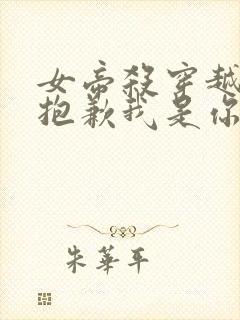 女帝殺穿越
抱歉我是你
朱華平